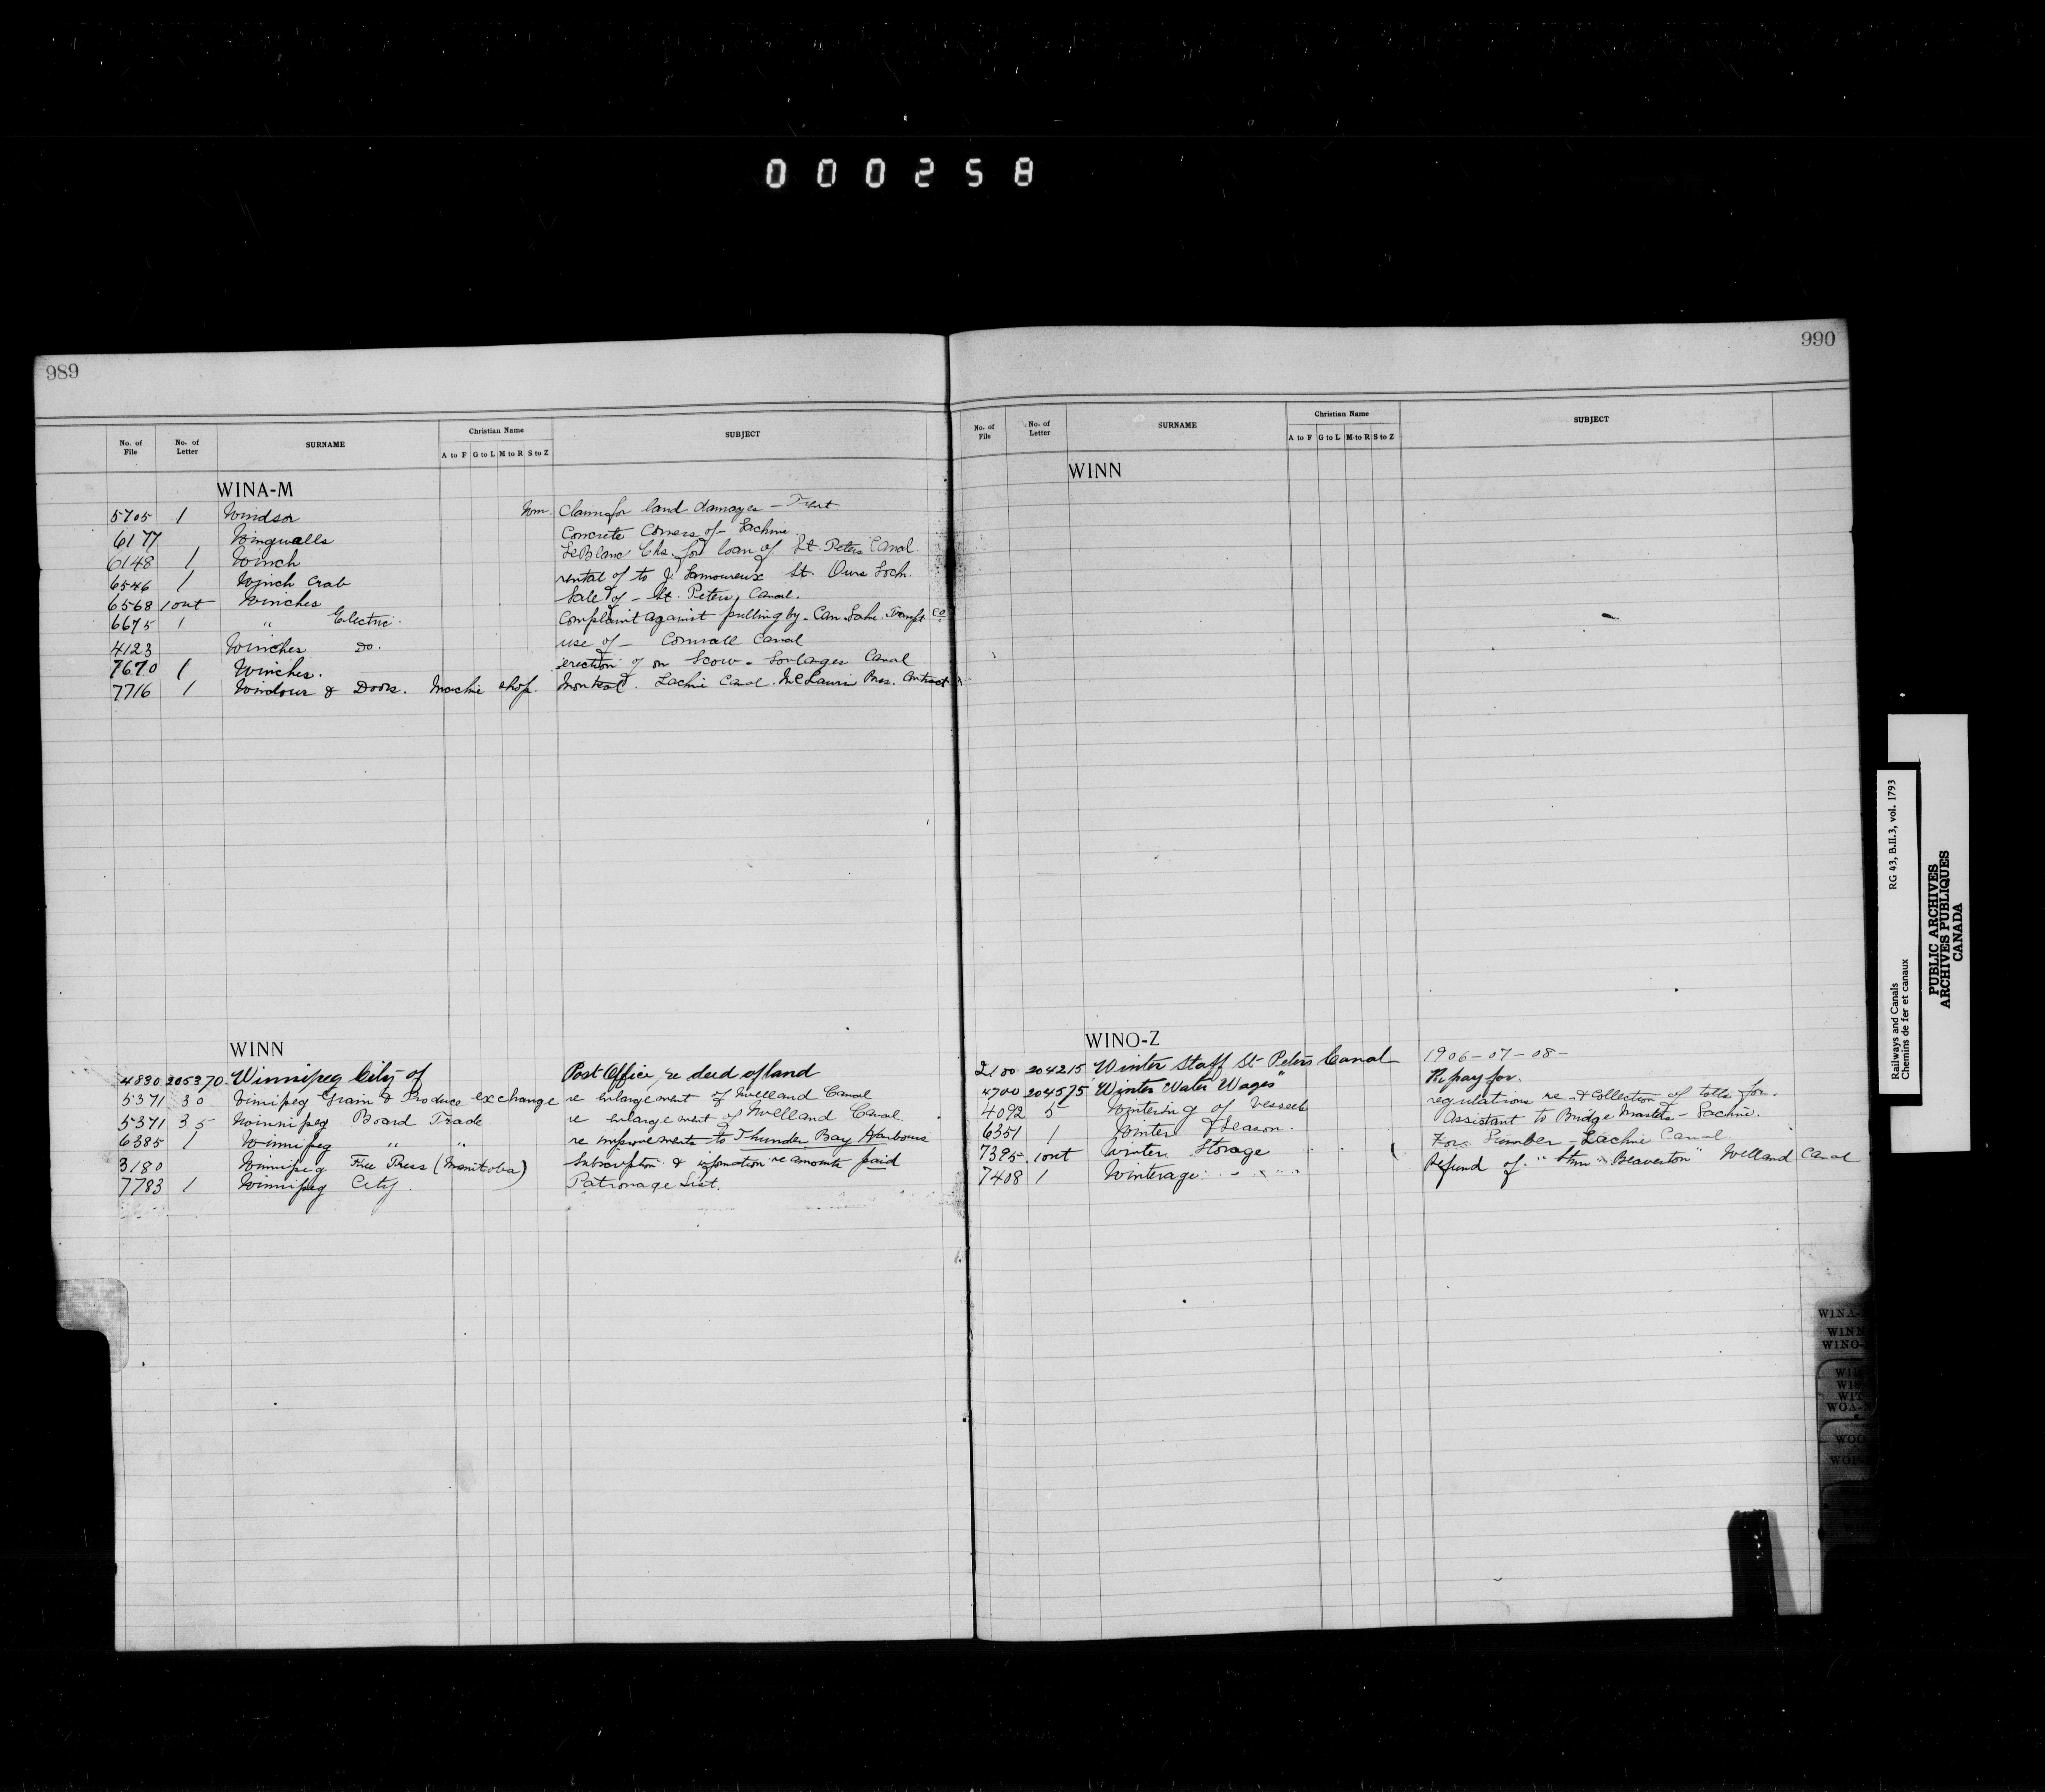 000258
989
No. of File No. of Letter SURNAME Christian Name A to F G to L M to R S to Z SUBJECT
WINA-M
5705 1 Windsor Wm. Claim for land damages - Trent
6177 Wingwalls Concrete Corners of - Lachine
6148 1 Winch LeBlanc Chs. for loan of St. Peters Canal
6546 1 Winch Crab rental of to J. Lamoureux St. Ours Lock.
6568 1 out Winches Sale of - St. Peters Canal.
6675 1 " Electric. Complaint against pulling by - Can. Lake Transpt Co.
4123 Winches Do. use of - Cornwall Canal
7670 1 Winches. erection of on Scow - Soulanges Canal
7716 1 Windows & Doors. Machine shop. Montreal. Lachine Canal. McLaurin Bros. Contract
WINN
4830 205370 Winnipeg City of Post Office re deed of land
5371 30 Winnipeg Grain & Produce exchange re enlargement of Welland Canal
5371 35 Winnipeg Board Trade re enlargement of Welland Canal.
6385 1 Winnipeg " " re improvements to Thunder Bay Harbours
3180 Winnipeg Free Press (Manitoba) Subscription & information re amounts paid
7783 1 Winnipeg City. Patronage List.
990
No. of File No. of Letter SURNAME Christian Name A to F G to L M to R S to Z SUBJECT
WINN
WINO-Z
2100 204215 Winter Staff St Peters Canal 1906-07-08-
4700 204575 "Winter Water Wages" Re pay for.
4092 5 Wintering of Vessels regulations re - & Collection of tolls for.
6351 1 Winter Season. Assistant to Bridge Master - Lachine.
7395 1 out Winter Storage For Lumber - Lachine Canal
7408 1 Winterage Refund of. "Stm Beaverton" Welland Canal
WINA-
WINN
WINO-
WIS
WIT
WOA-
WOO
Railways and Canals RG 43, B.II.3, vol. 1793
Chemins de fer et canaux
PUBLIC ARCHIVES
ARCHIVES PUBLIQUES
CANADA